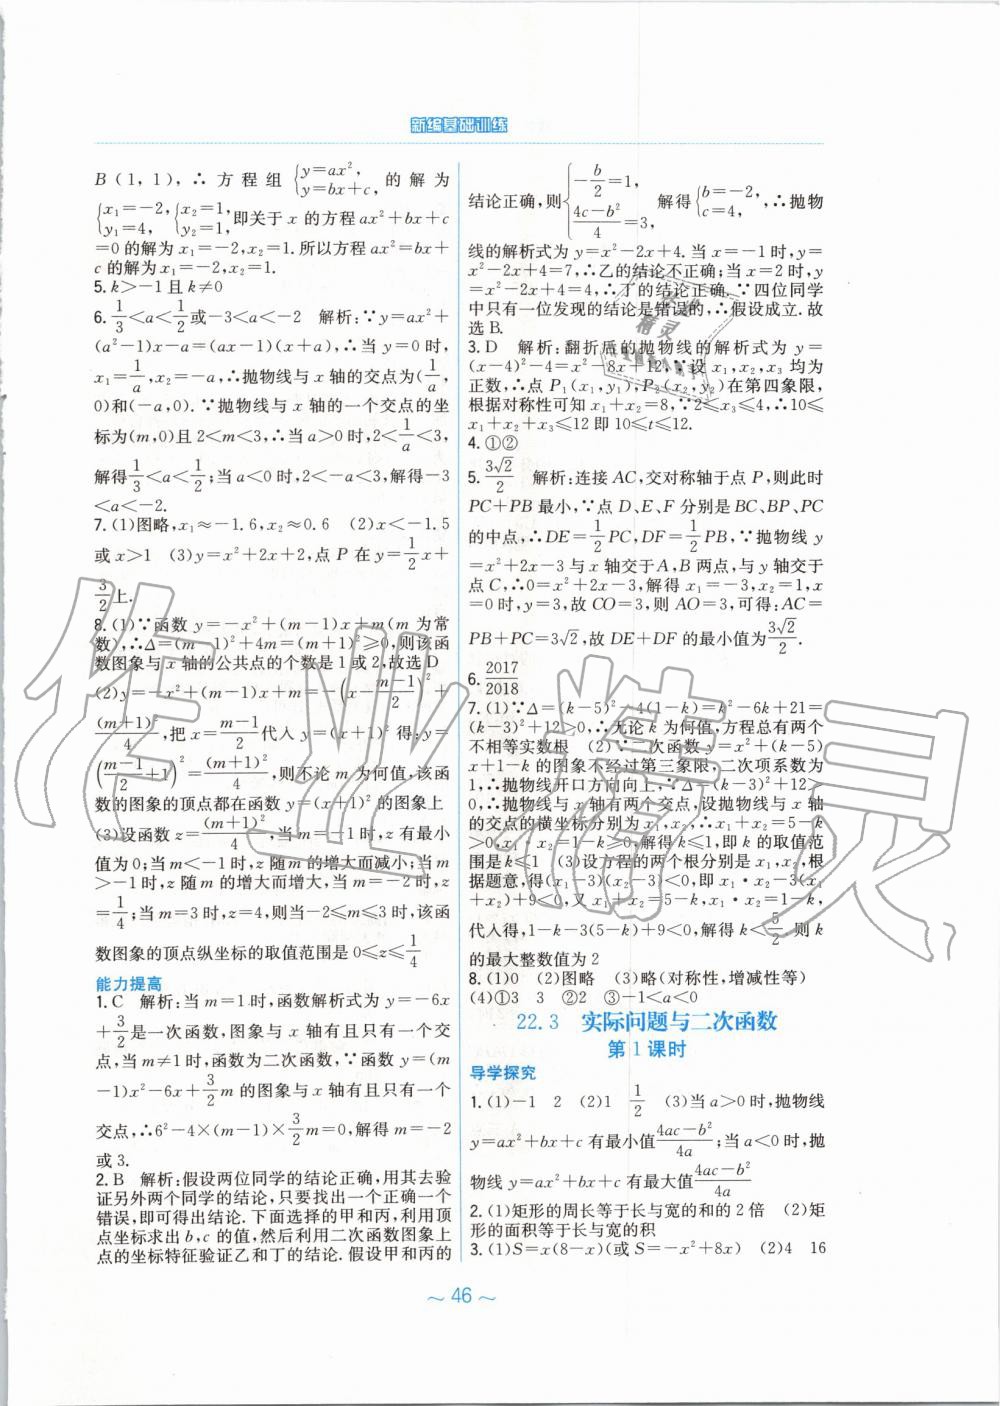 新编基础训练
B(1,1),∴方程组{y=ax²,y=bx+c,的解为
{x₁=-2,y₁=4,{x₂=1,y₂=1,即关于x的方程ax²+bx+c
=0的解为x₁=-2,x₂=1.所以方程ax²=bx+
c的解为x₁=-2,x₂=1.
5.k>-1且k≠0
6.1/3<a<1/2或-3<a<-2 解析:∵y=ax²+
(a²-1)x-a=(ax-1)(x+a),∴当y=0时,
x₁=1/a,x₂=-a,∴抛物线与x轴的交点为(1/a,
0)和(-a,0).∵抛物线与x轴的一个交点的坐
标为(m,0)且2<m<3,∴当a>0时,2<1/a<3,
解得1/3<a<1/2;当a<0时,2<-a<3,解得-3
<a<-2.
7.(1)图略,x₁≈-1.6,x₂≈0.6 (2)x<-1.5
或x>1 (3)y=x²+2x+2,点P在y=1/2x+
3/2上.
8.(1)∵函数y=-x²+(m-1)x+m(m为常
数),∴Δ=(m-1)²+4m=(m+1)²≥0,则该函
数图象与x轴的公共点的个数是1或2,故选D
(2)y=-x²+(m-1)x+m=-(x-(m-1)/2)²+
(m+1)²/4,把x=(m-1)/2代入y=(x+1)²得:y=
((m-1)/2+1)²=(m+1)²/4,则不论m为何值,该函
数的图象的顶点都在函数y=(x+1)²的图象上
(3)设函数z=(m+1)²/4,当m=-1时,z有最小
值为0;当m<-1时,z随m的增大而减小;当m
>-1时,z随m的增大而增大,当m=-2时,z
=1/4;当m=3时,z=4,则当-2≤m≤3时,该函
数图象的顶点纵坐标的取值范围是0≤z≤1/4
能力提高
1.C 解析:当m=1时,函数解析式为y=-6x
+3/2是一次函数,图象与x轴有且只有一个交
点,当m≠1时,函数为二次函数,∵函数y=(m
-1)x²-6x+3/2m的图象与x轴有且只有一个
交点,∴6²-4×(m-1)×3/2m=0,解得m=-2
或3.
2.B 解析:假设两位同学的结论正确,用其去验
证另外两个同学的结论,只要找出一个正确一个
错误,即可得出结论.下面选择的甲和丙,利用顶
点坐标求出b,c的值,然后利用二次函数图象上
点的坐标特征验证乙和丁的结论.假设甲和丙的
结论正确,则{-b/2=1,(4c-b²)/4=3,解得{b=-2,c=4,∴抛物
线的解析式为y=x²-2x+4.当x=-1时,y=
x²-2x+4=7,∴乙的结论不正确;当x=2时,y
=x²-2x+4=4,∴丁的结论正确.∵四位同学
中只有一位发现的结论是错误的,∴假设成立.故
选B.
3.D 解析:翻折后的抛物线的解析式为y=
(x-4)²-4=x²-8x+12,∵设x₁,x₂,x₃均为
正数,∴点P₁(x₁,y₁),P₂(x₂,y₂)在第四象限,
根据对称性可知x₁+x₂=8,∵2≤x₃≤4,∴10≤
x₁+x₂+x₃≤12即10≤t≤12.
4.①②
5.3√2/2 解析:连接AC,交对称轴于点P,则此时
PC+PB最小,∵点D、E、F分别是BC、BP、PC
的中点,∴DE=1/2PC,DF=1/2PB,∵抛物线y
=x²+2x-3与x轴交于A,B两点,与y轴交于
点C,∴0=x²+2x-3,解得x₁=-3,x₂=1,x
=0时,y=3,故CO=3,则AO=3,可得:AC=
PB+PC=3√2,故DE+DF的最小值为3√2/2.
6.2017/2018
7.(1)∵Δ=(k-5)²-4(1-k)=k²-6k+21=
(k-3)²+12>0,∴无论k为何值,方程总有两个
不相等实数根 (2)∵二次函数y=x²+(k-5)
x+1-k的图象不经过第三象限,二次项系数为
1,∴抛物线开口方向向上,∵Δ=(k-3)²+12>
0,∴抛物线与x轴有两个交点,设抛物线与x轴
的交点的横坐标分别为x₁,x₂,∴x₁+x₂=5-k
>0,x₁·x₂=1-k≥0,解得k≤1,即k的取值范
围是k≤1 (3)设方程的两个根分别是x₁,x₂,根
据题意,得(x₁-3)(x₂-3)<0,即x₁·x₂-3(x₁
+x₂)+9<0,又x₁+x₂=5-k,x₁·x₂=1-k,
代入得,1-k-3(5-k)+9<0,解得k<5/2.则k
的最大整数值为2
8.(1)0 (2)图略 (3)略(对称性,增减性等)
(4)①3 3 ②2 ③-1<a<0
22.3 实际问题与二次函数
第1课时
导学探究
1.(1)-1 2 (2)1 1/2 (3)当a>0时,抛物线
y=ax²+bx+c有最小值(4ac-b²)/4a;当a<0时,抛
物线y=ax²+bx+c有最大值(4ac-b²)/4a
2.(1)矩形的周长等于长与宽的和的2倍 (2)矩
形的面积等于长与宽的积
3.(1)S=x(8-x)(或S=-x²+8x) (2)4 16
~ 46 ~
作业精灵